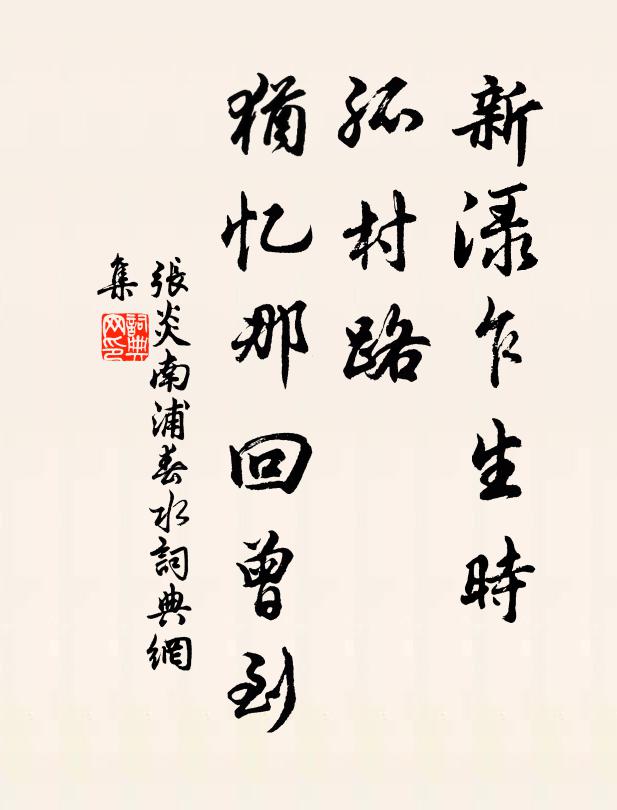 新渌乍生時
孤村路
猶忆那回曾到
張炎南浦春水詞典網
集
詞典
网印